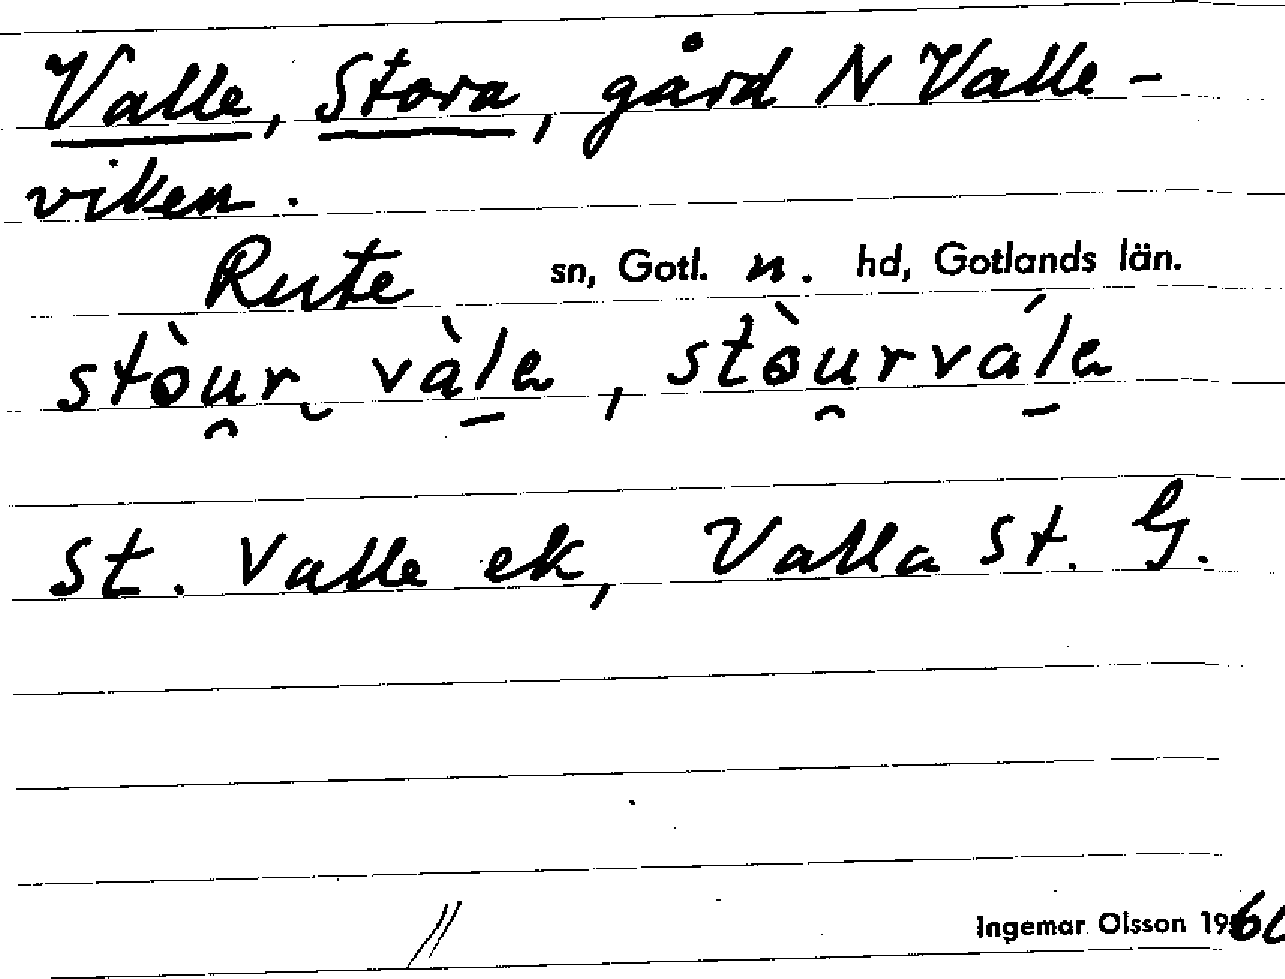 Valle, Stora, gård N Valle-
viken.
Rute sn, Gotl. n. hd, Gotlands län.
stò̀u̯r vàl̠a, stòu̯rvál̠a
St. Valle ek, Valla St. G.
Ingemar Olsson 196